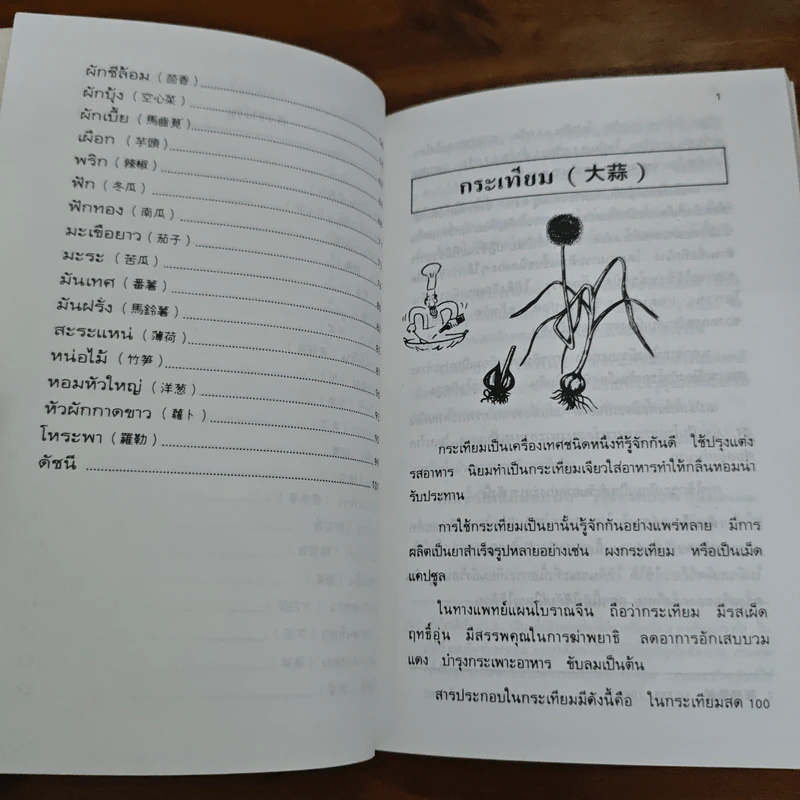 ผักชีล้อม (茴香)
ผักบุ้ง (空心菜)
ผักเบี้ย (馬齒莧)
เผือก (芋頭)
พริก (辣椒)
ฟัก (冬瓜)
ฟักทอง (南瓜)
มะเขือยาว (茄子)
มะระ (苦瓜)
มันเทศ (番薯)
มันฝรั่ง (馬鈴薯)
สะระแหน่ (薄荷)
หน่อไม้ (竹笋)
หอมหัวใหญ่ (洋葱)
หัวผักกาดขาว (蘿卜)
โหระพา (羅勒)
ดัชนี
1
กระเทียม (大蒜)
กระเทียมเป็นเครื่องเทศชนิดหนึ่งที่รู้จักกันดี ใช้ปรุงแต่ง
รสอาหาร นิยมทำเป็นกระเทียมเจียวใส่อาหารทำให้กลิ่นหอมน่า
รับประทาน
การใช้กระเทียมเป็นยานั้นรู้จักกันอย่างแพร่หลาย มีการ
ผลิตเป็นยาสำเร็จรูปหลายอย่างเช่น ผงกระเทียม หรือเป็นเม็ด
แคปซูล
ในทางแพทย์แผนโบราณจีน ถือว่ากระเทียม มีรสเผ็ด
ฤทธิ์อุ่น มีสรรพคุณในการฆ่าพยาธิ ลดอาการอักเสบบวม
แดง บำรุงกระเพาะอาหาร ขับลมเป็นต้น
สารประกอบในกระเทียมมีดังนี้คือ ในกระเทียมสด 100